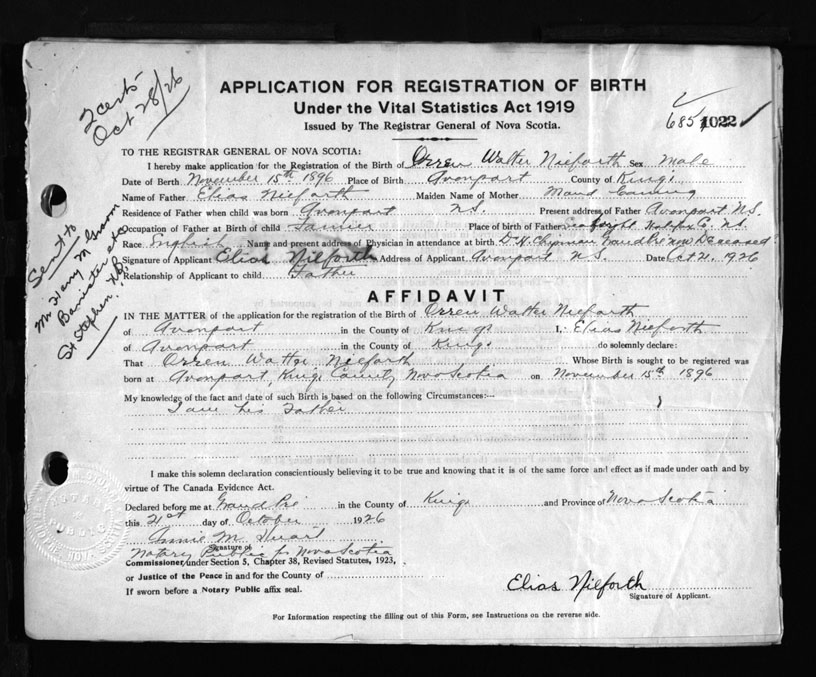 2 certs
Oct 28/26
APPLICATION FOR REGISTRATION OF BIRTH
Under the Vital Statistics Act 1919
Issued by The Registrar General of Nova Scotia.
685 1022
TO THE REGISTRAR GENERAL OF NOVA SCOTIA:
I hereby make application for the Registration of the Birth of Orren Walter Nieforth Sex Male
Date of Birth November 15th 1896 Place of Birth Avonport County of Kings
Name of Father Elias Nieforth Maiden Name of Mother Maud
Residence of Father when child was born Avonport N.S. Present address of Father Avonport N.S.
Occupation of Father at Birth of child Farmer Place of birth of Father Seabright Halifax Co. N.S.
Race English Name and present address of Physician in attendance at birth Dr H. Chipman Grand Pre now Deceased
Signature of Applicant Elias Nilforth Address of Applicant Avonport N.S. Date Oct 21, 1926
Relationship of Applicant to child Father
Sent to
Mr Harry M Groom
Banister etc
St Stephen, N.B.
AFFIDAVIT
IN THE MATTER of the application for the registration of the Birth of Orren Walter Nieforth
of Avonport in the County of Kings I, Elias Nieforth
of Avonport in the County of Kings do solemnly declare:
That Orren Walter Nieforth Whose Birth is sought to be registered was
born at Avonport, Kings County Nova Scotia on November 15th 1896
My knowledge of the fact and date of such Birth is based on the following Circumstances:—
I am his Father
I make this solemn declaration conscientiously believing it to be true and knowing that it is of the same force and effect as if made under oath and by
virtue of The Canada Evidence Act.
Declared before me at Grand Pré in the County of Kings and Province of Nova Scotia
this 21st day of October 1926
Annie M. Stuart
Signature of
Notary Public for Nova Scotia
Commissioner, under Section 5, Chapter 38, Revised Statutes, 1923,
or Justice of the Peace in and for the County of
If sworn before a Notary Public affix seal.
Elias Nilforth
Signature of Applicant.
For Information respecting the filling out of this Form, see Instructions on the reverse side.
NOTARY
PUBLIC